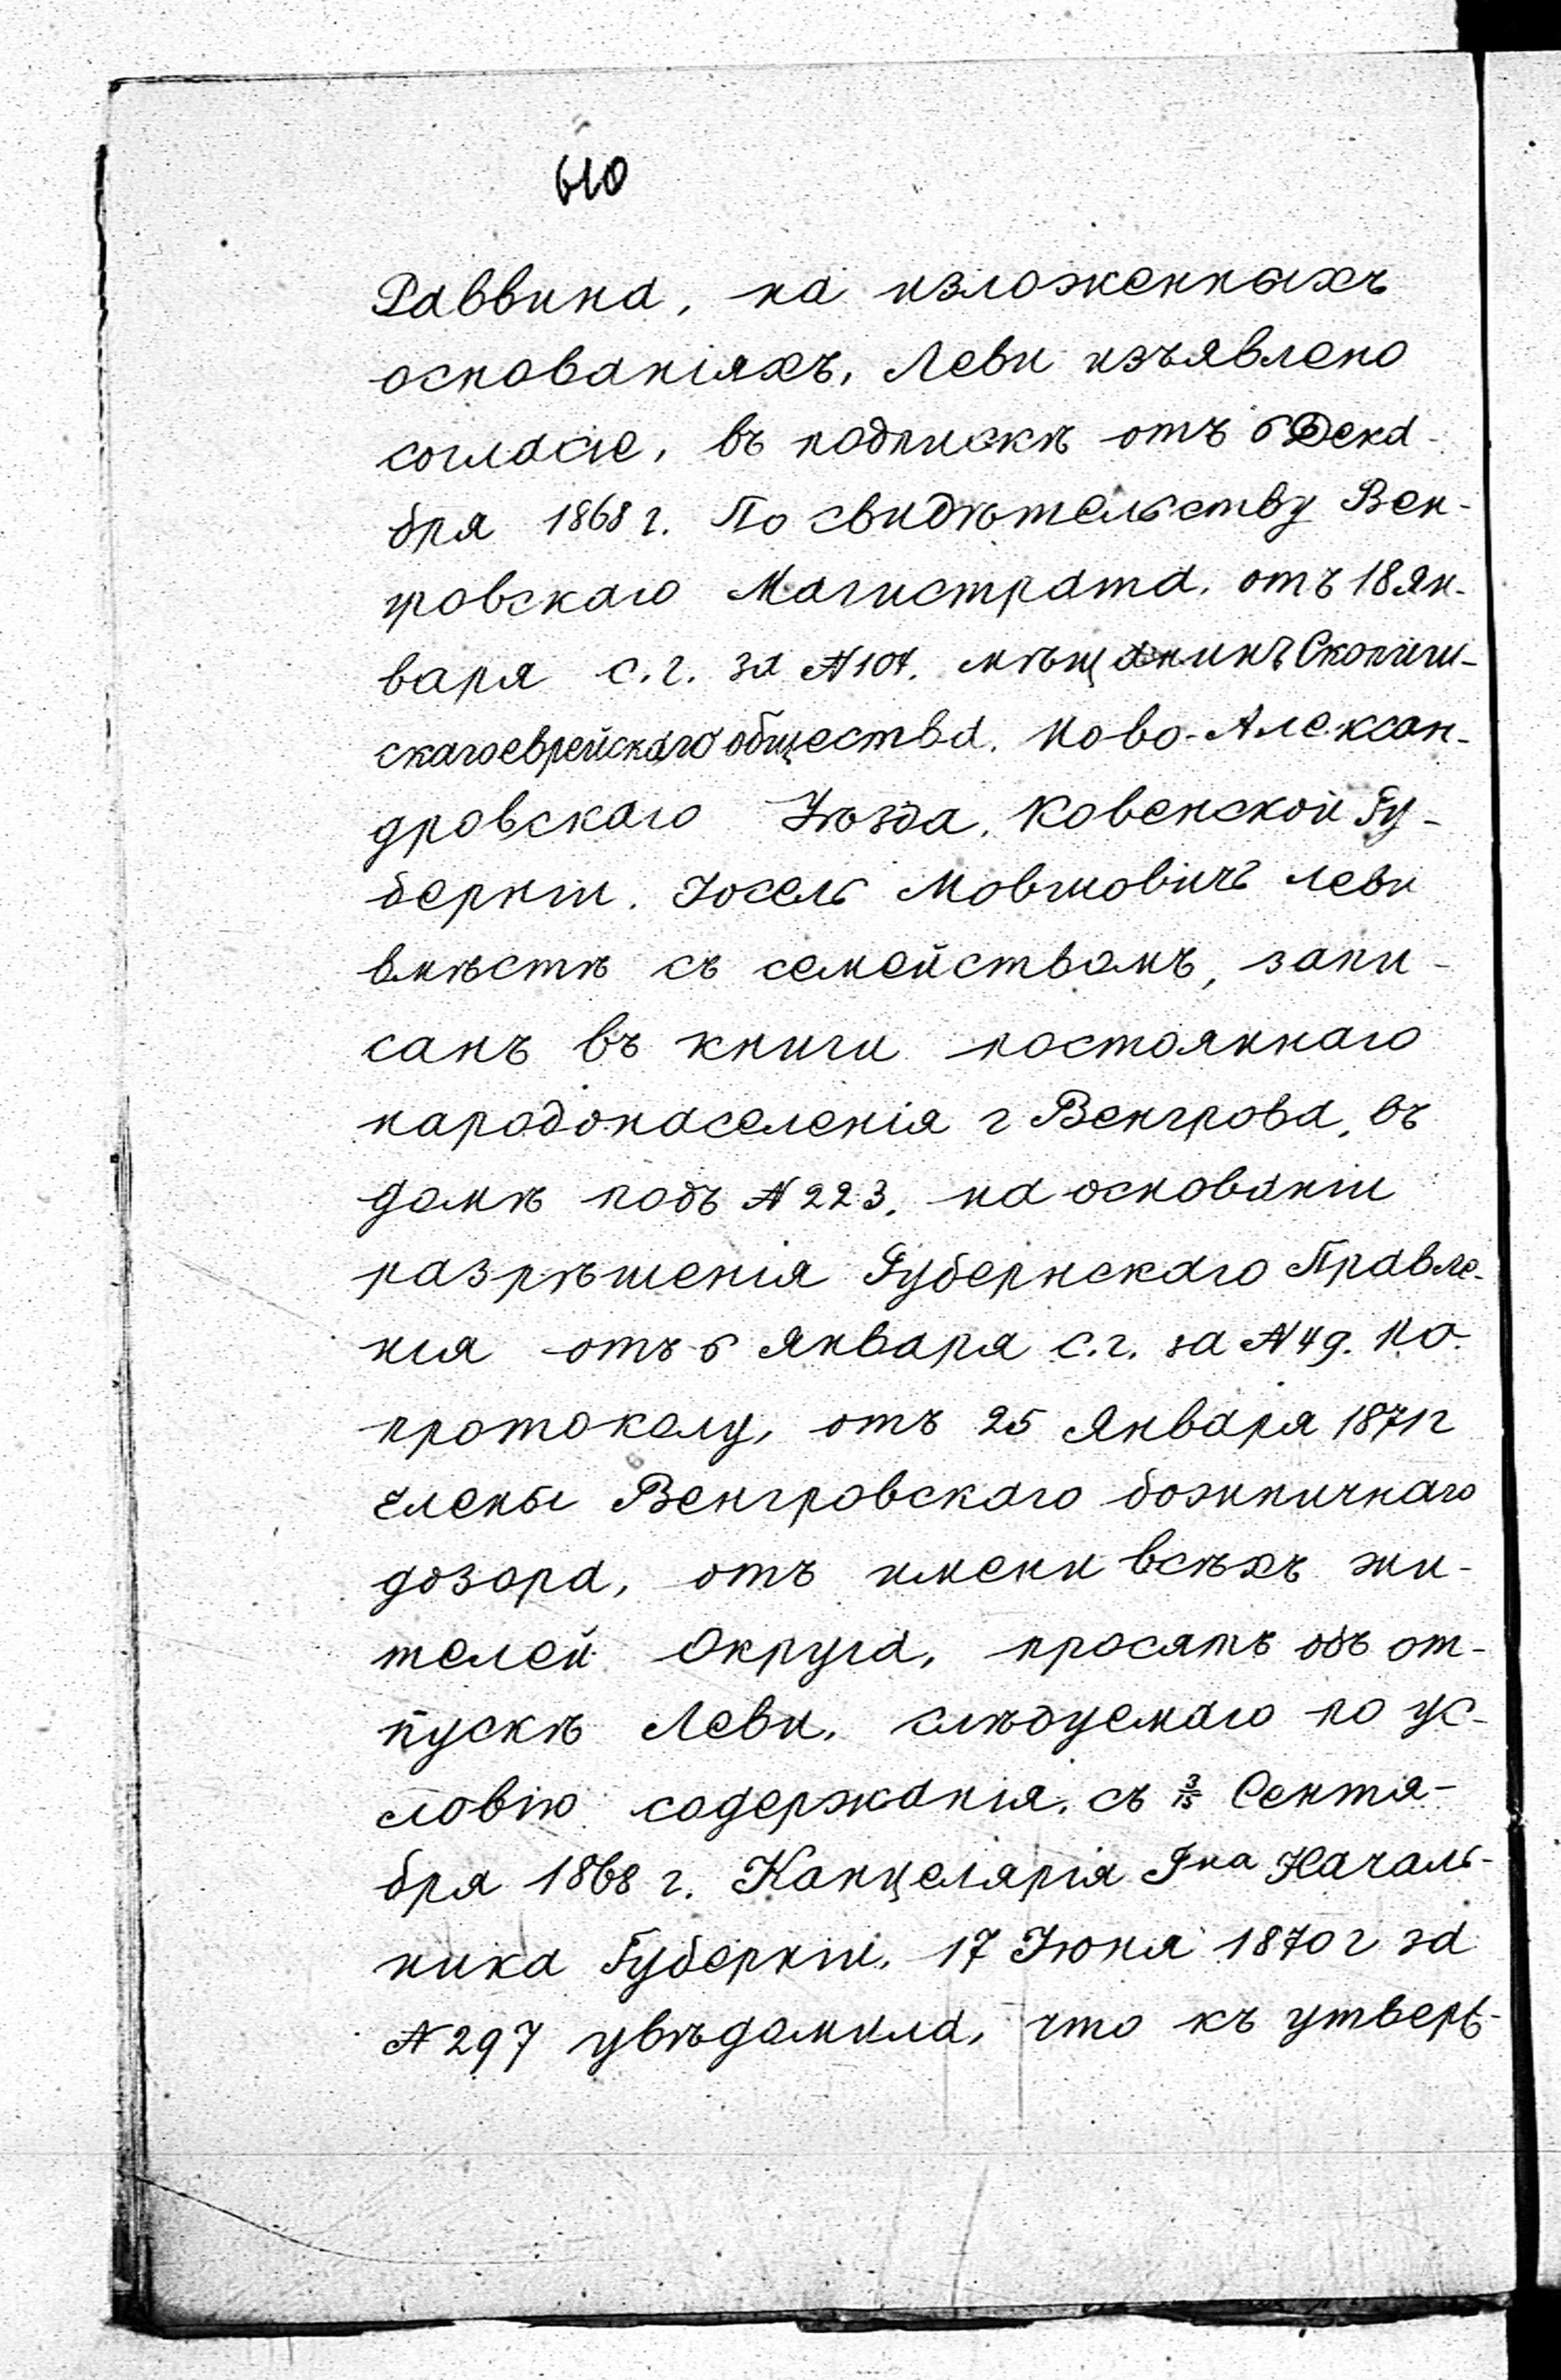 610
Раввина, на изложенныхъ
основаніяхъ, Леви изъявлено
согласіе, въ подпискѣ отъ 6 Дека-
бря 1868 г. По свидѣтельству Вен-
гровскаго Магистрата, отъ 18 Ян-
варя с. г. за № 104, мѣщанинъ Скопиш-
скаго еврейскаго общества, Ново-Алексан-
дровскаго Уѣзда, Ковенской Гу-
берніи, Іосель Мовшовичъ Леви
вмѣстѣ съ семействомъ, запи-
санъ въ книги постояннаго
народонаселенія г Венгрова, въ
домѣ подъ № 223, на основаніи
разрѣшенія Губернскаго Правле-
нія отъ 5 Января с. г. за № 49. По
протоколу, отъ 25 Января 1871 г
члены Венгровскаго божничнаго
дозора, отъ имени всѣхъ жи-
телей Округа, просятъ объ от-
пускѣ Леви, слѣдуемаго по ус-
ловію содержанія, съ 3/15 Сентя-
бря 1868 г. Канцелярія Гна Началь-
ника Губерніи, 17 Іюня 1870 г за
№ 297 увѣдомила, что къ утверь-